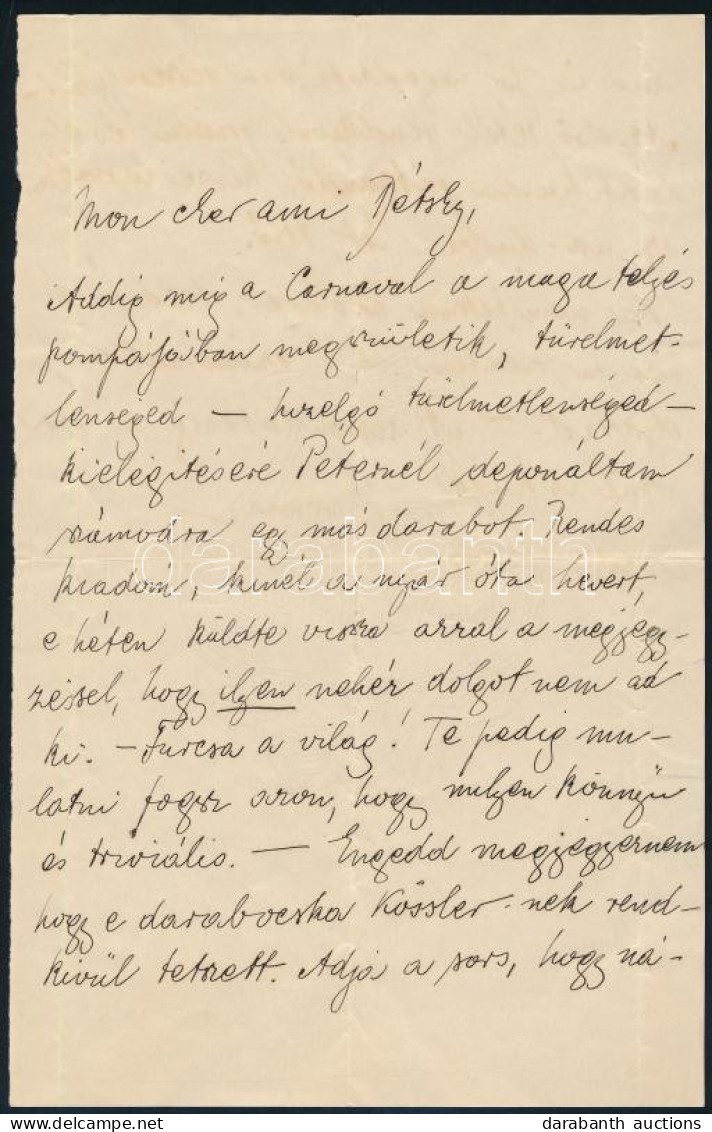 Mon cher ami Rétsky,
Addig mig a Carnaval a maga teljes
pompájában megszületik, türelmet-
lenséged — hizelgő türelmetlenséged —
kielégitésére Péternél deponáltam
számodra egy más darabot. Rendes
kiadóm, kinél a nyár óta hevert,
e héten küldte vissza azzal a megjegy-
zéssel, hogy ilyen nehéz dolgot nem ad
ki. — Furcsa a világ! Te pedig mu-
latni fogsz azon, hogy milyen könnyü
és triviális. — Engedd megjegyeznem
hogy e darabocska Kössler-nek rend-
kivül tetszett. Adja a sors, hogy ná-
darabanth
darabanth auctions